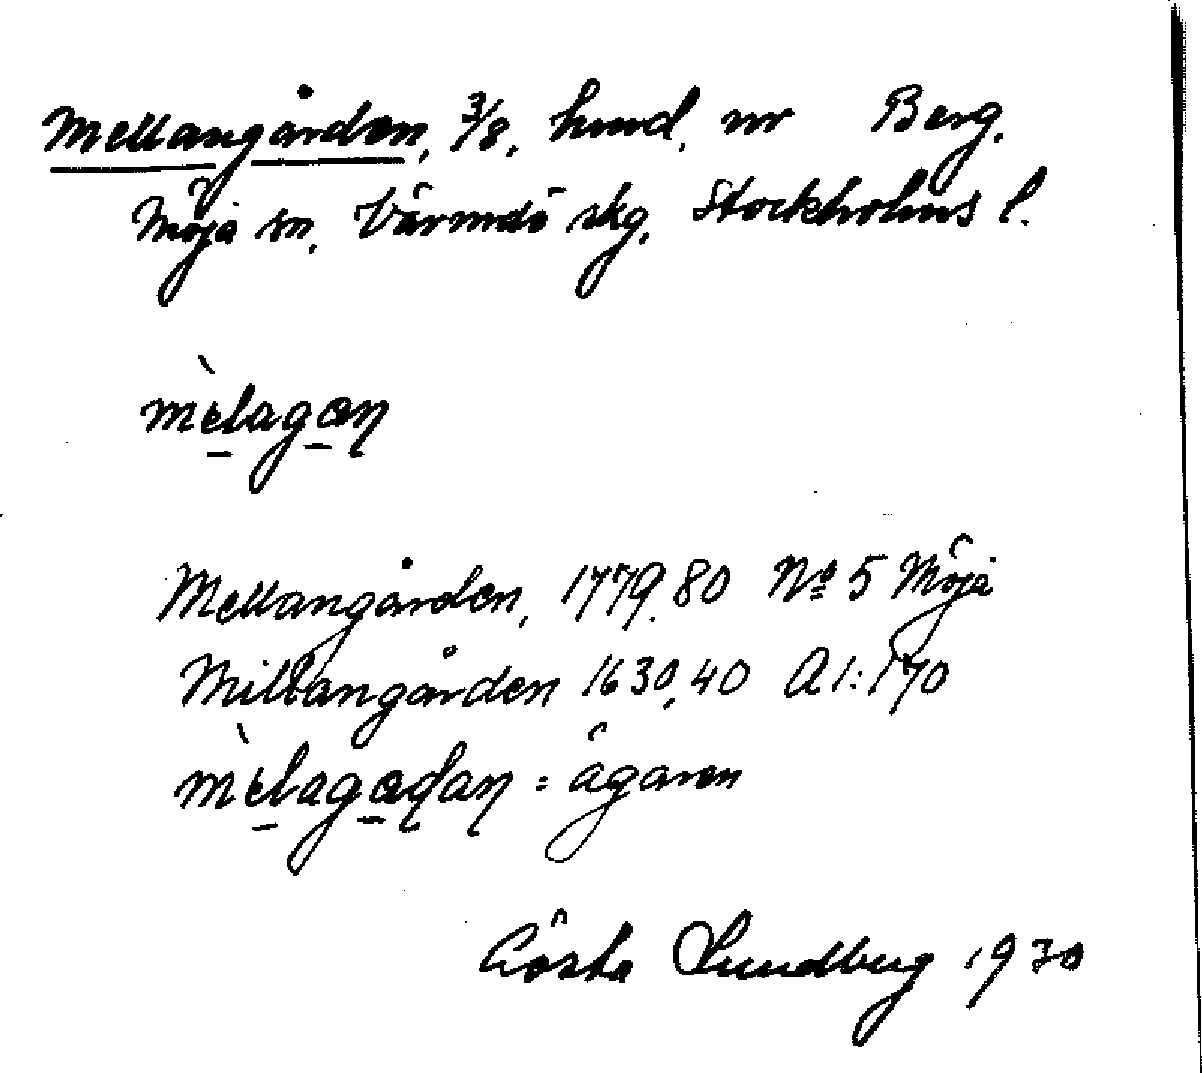 Mellangården, 3/8, hmd, nr Berg,
Möja sn, Värmdö skg, Stockholms l.
mèlagɷṇ
Mellangården, 1779.80 No 5 Möja
Millangården 1630,40 A1:170
mèlagɷḍaṇ = ägaren
Gösta Lundberg 1930